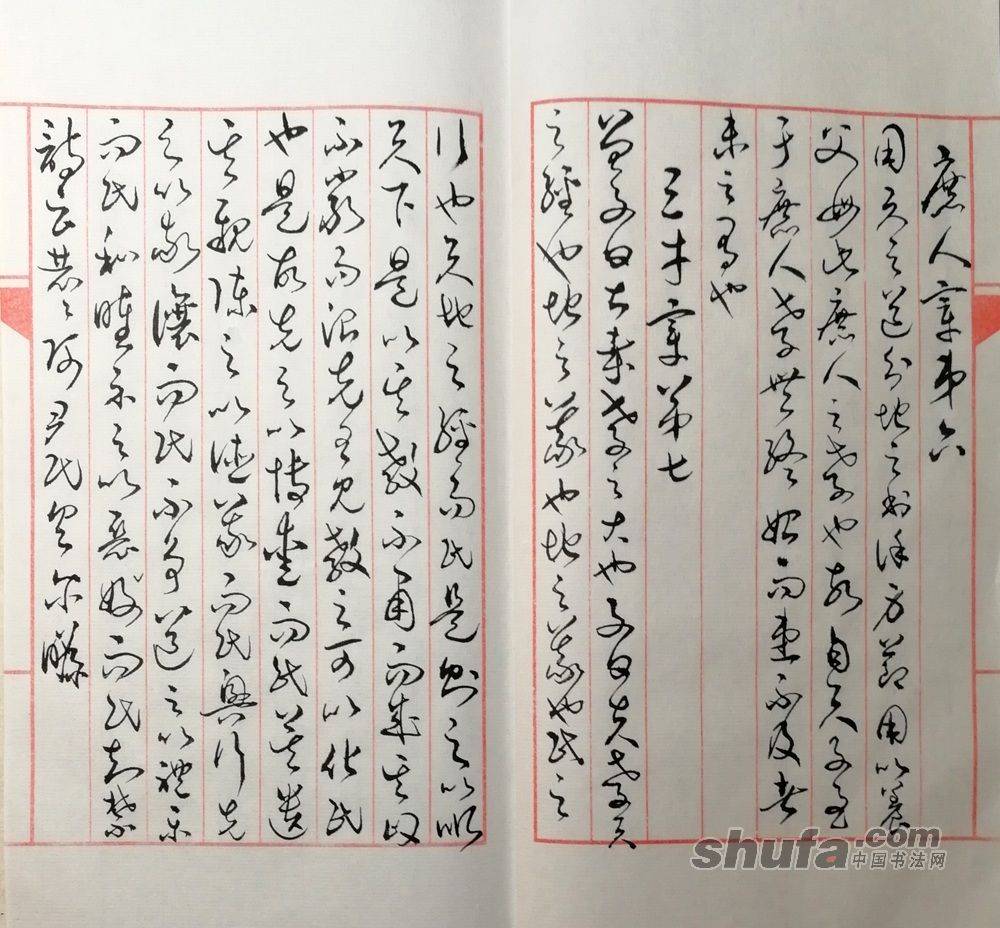 庶人章第六
用天之道分地之利謹身節用以養
父母此庶人之孝也故自天子至
于庶人孝無終始而患不及者
未之有也
三才章第七
曾子曰甚哉孝之大也子曰夫孝天
之經也地之義也地之義也民之
行也天地之經而民是則之以順
天下是以其教不肅而成其政
不嚴而治先王見教之可以化民
也是故先之以博愛而民莫遺
其親陳之以德義而民興行先
之以敬讓而民不爭道之以禮樂
而民和睦示之以惡好而民知禁
詩云赫〻師尹民具爾瞻
shufa.com
中国书法网